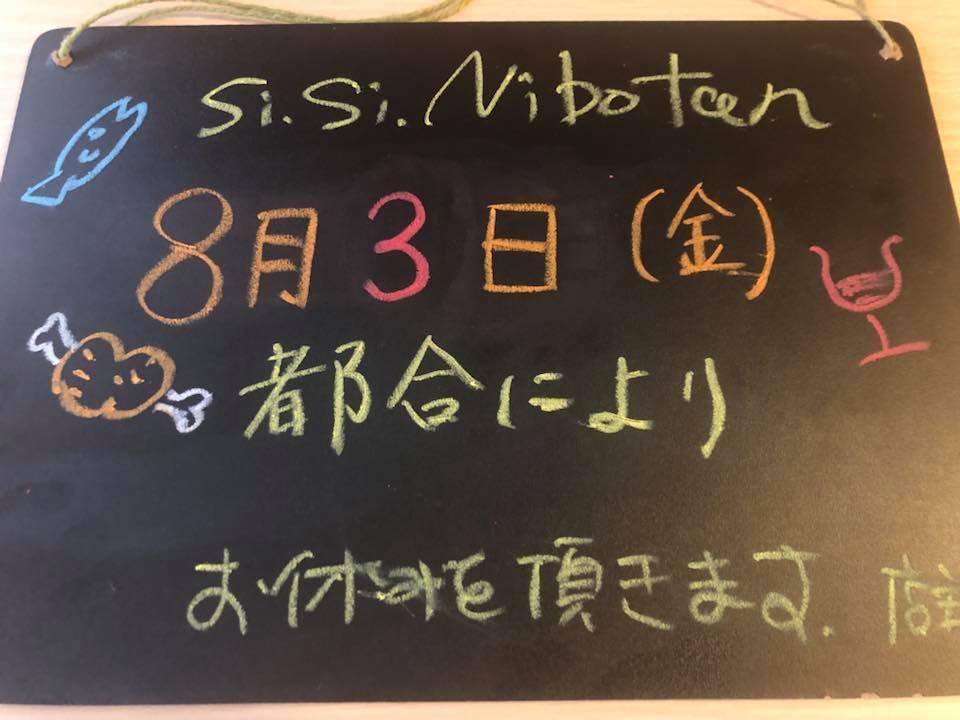 Si.Si.Nibotan
8月3日(金)
都合により
お休みを頂きます.